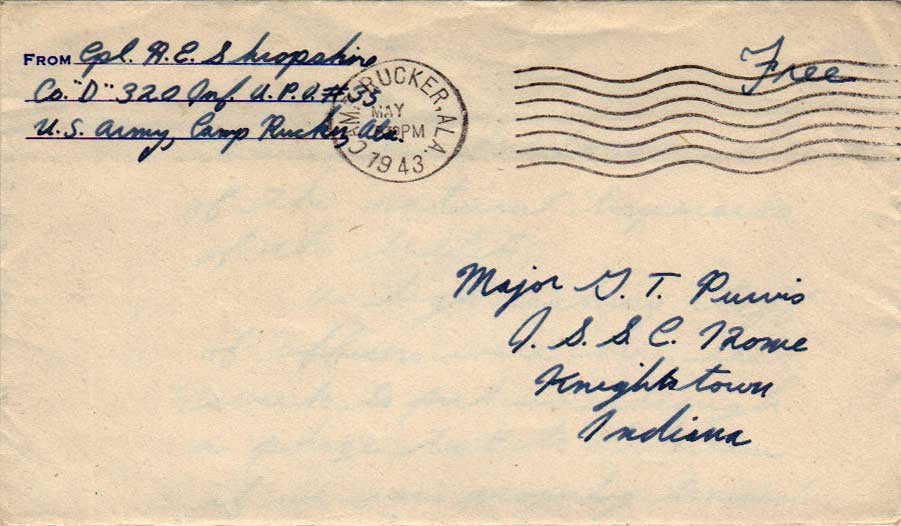 FROM Cpl. H. E. Shropshire
Co. "D" 320 Inf. A.P.O. #35
U.S. Army, Camp Rucker, Ala.
CAMP RUCKER, ALA.
MAY
PM
1943
Free
Major G. T. Purvis
I. S. S. C. Home
Knightstown
Indiana